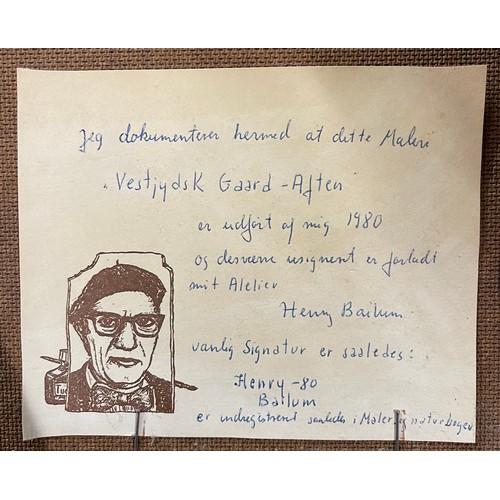 Jeg dokumenterer hermed at dette Maleri
"Vestjydsk Gaard - Aften
er udført af mig 1980
og desværre usigneret er forladt
mit Atelier
Henry Bailum
vanlig Signatur er saaledes:
Henry -80
Bailum
er indregistreret saaledes i Malersignaturbogen